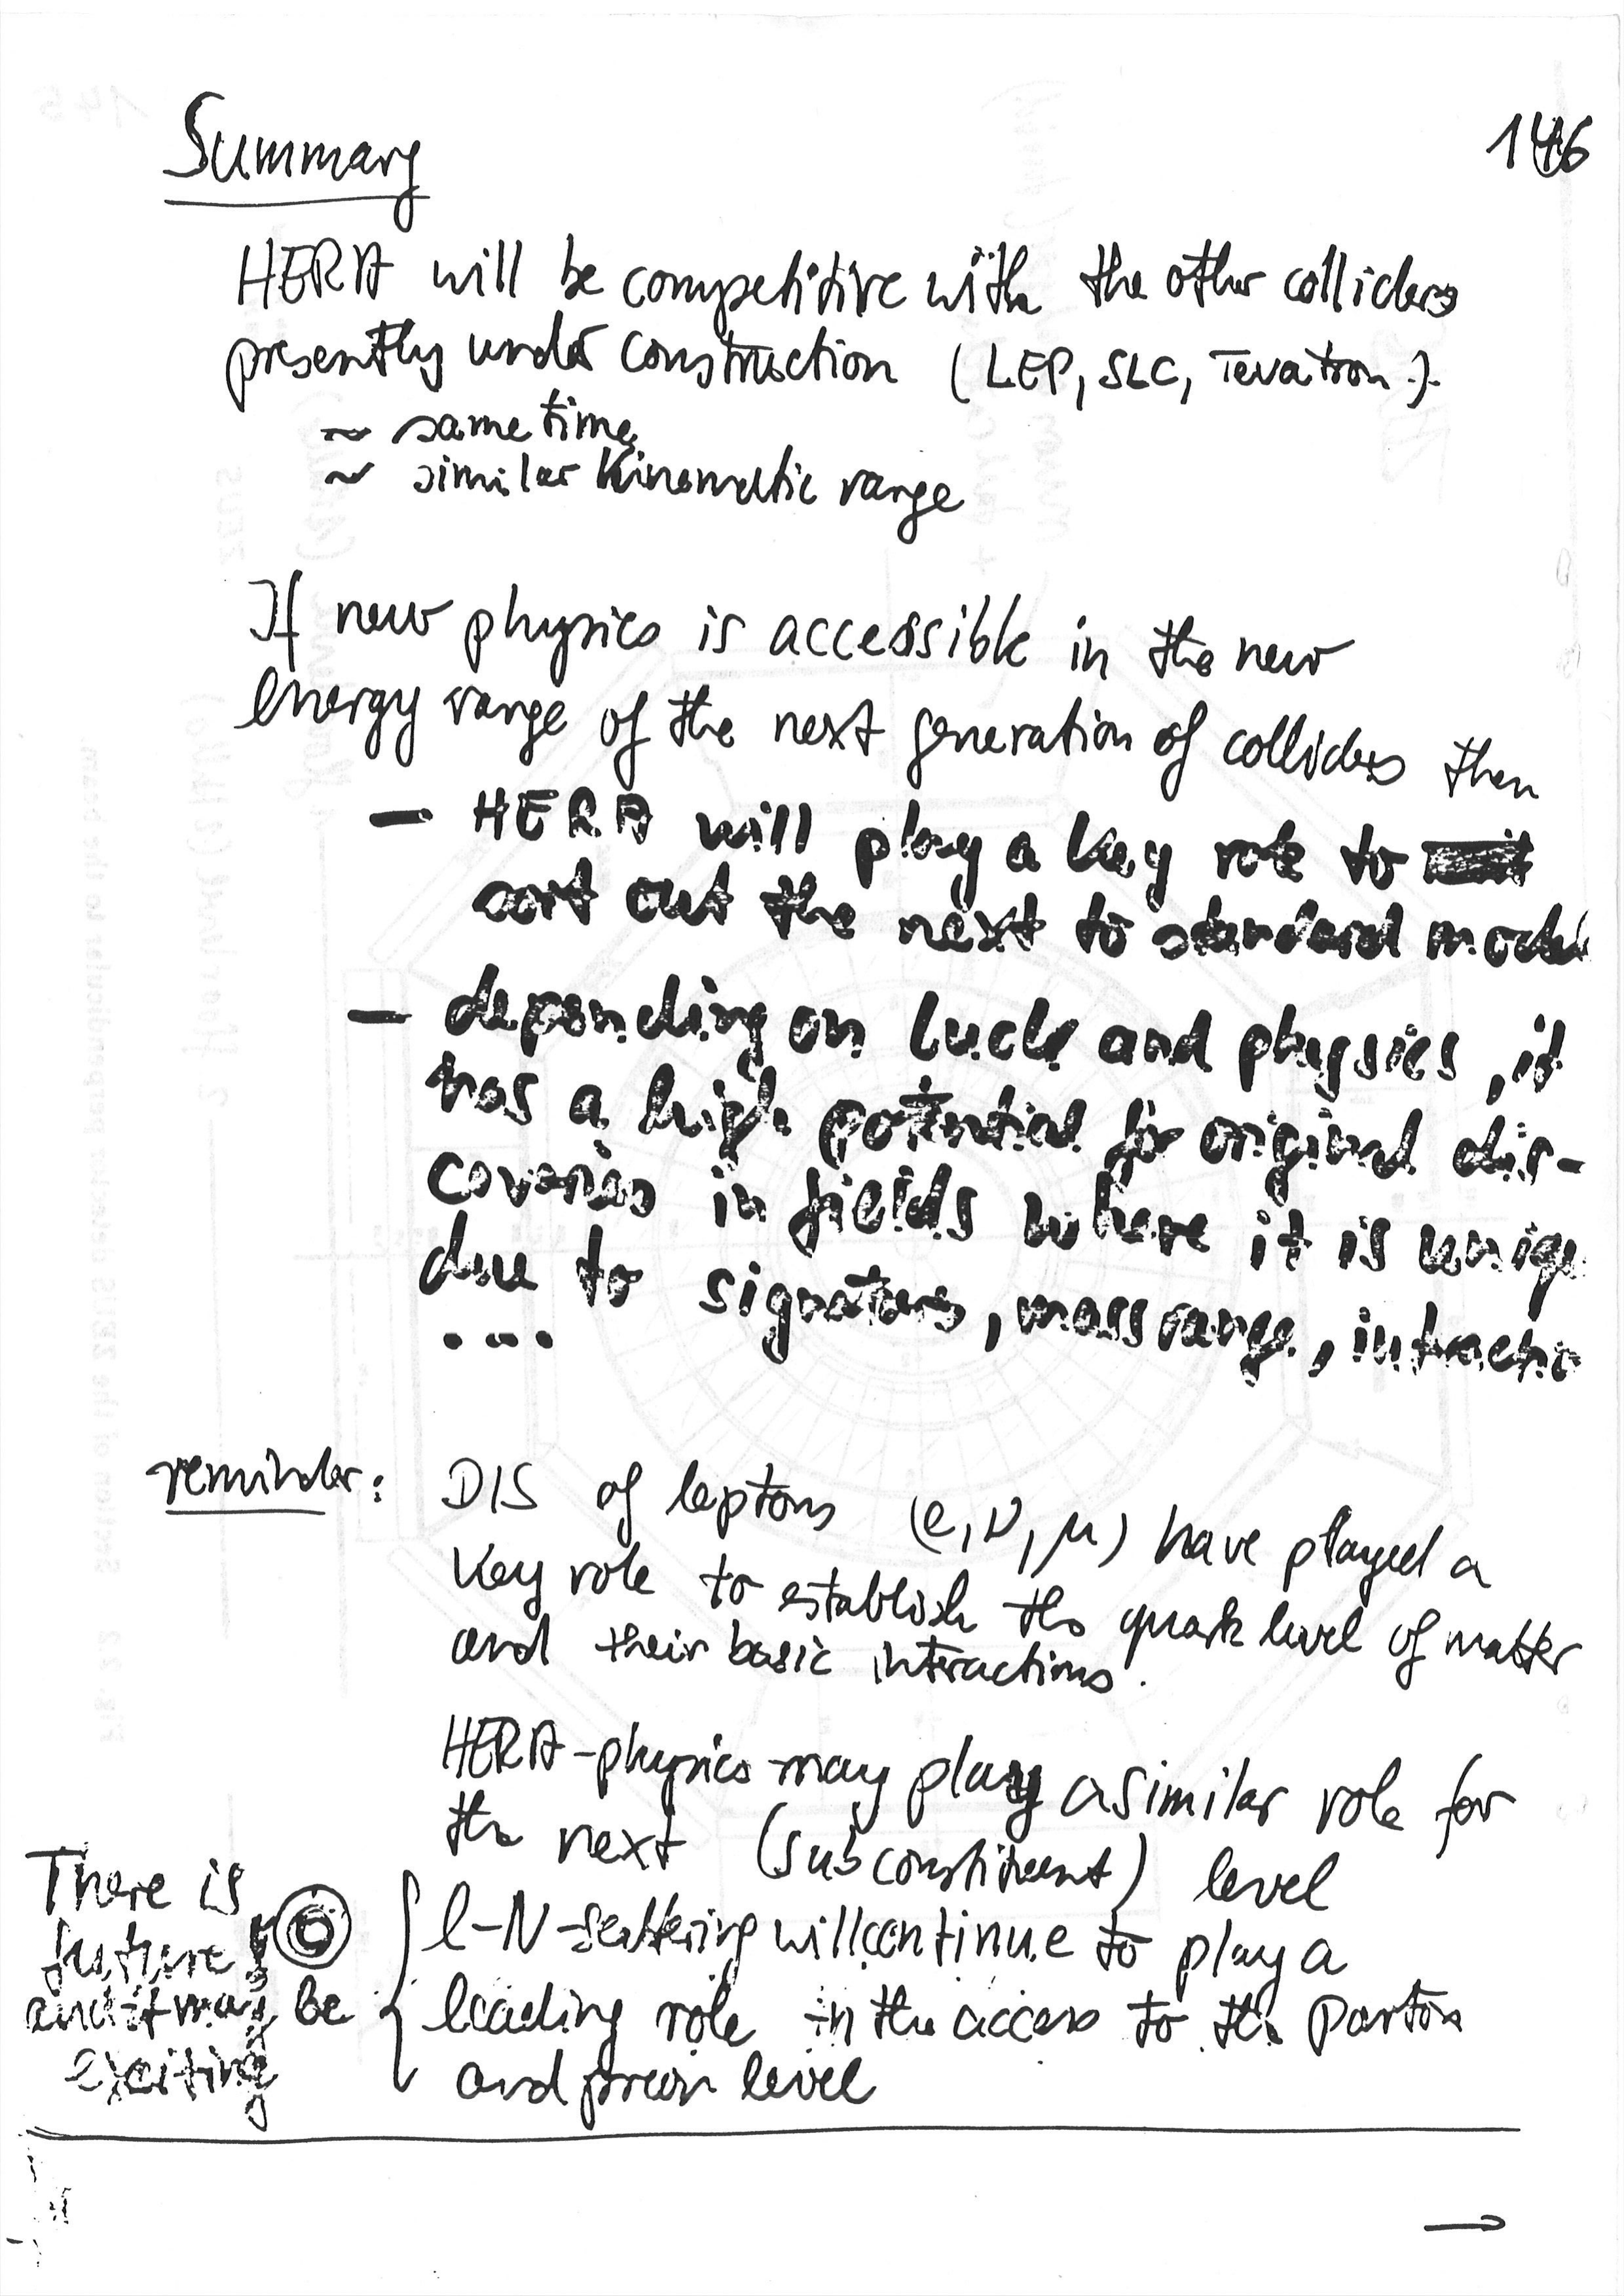 Summary
146
HERA will be competitive with the other colliders
presently under construction (LEP, SLC, Tevatron..).
~ same time
~ similar kinematic range
If new physics is accessible in the new
energy range of the next generation of colliders then
— HERA will play a key role to
sort out the next to standard model
— depending on luck and physics, it
has a high potential for original dis-
coveries in fields where it is uniqu
due to signatures, mass range, interactio
....
reminder: DIS of leptons (e, ν, μ) have played a
key role to establish the quark level of matter
and their basic interactions.
HERA-physics may play a similar role for
the next (subconstituent) level
l-N-scattering will continue to play a
leading role in the access to the parton
and preon level
There is
future
and it may be
exciting
→